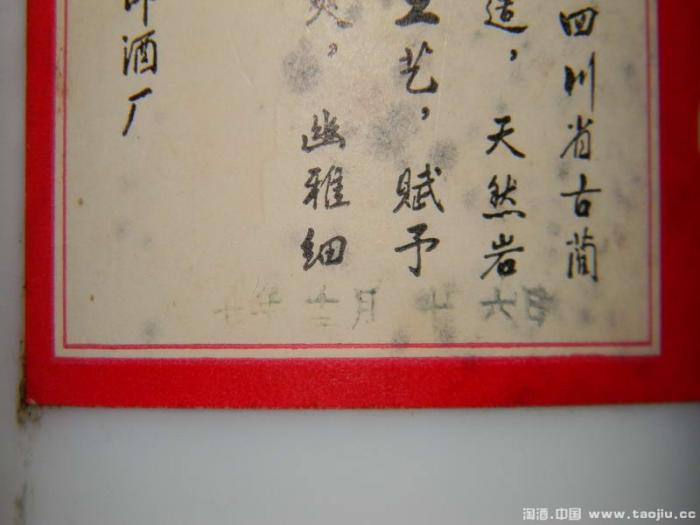 四川省古蔺
造，天然岩
工艺，赋予
，幽雅细
酒厂
淘酒.中国 www.taojiu.cc